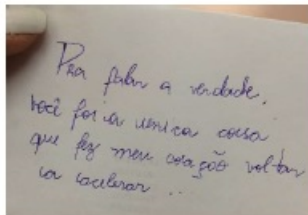 Pra falar a verdade,
você foi a unica coisa
que fez meu coração voltar
a acelerar ...